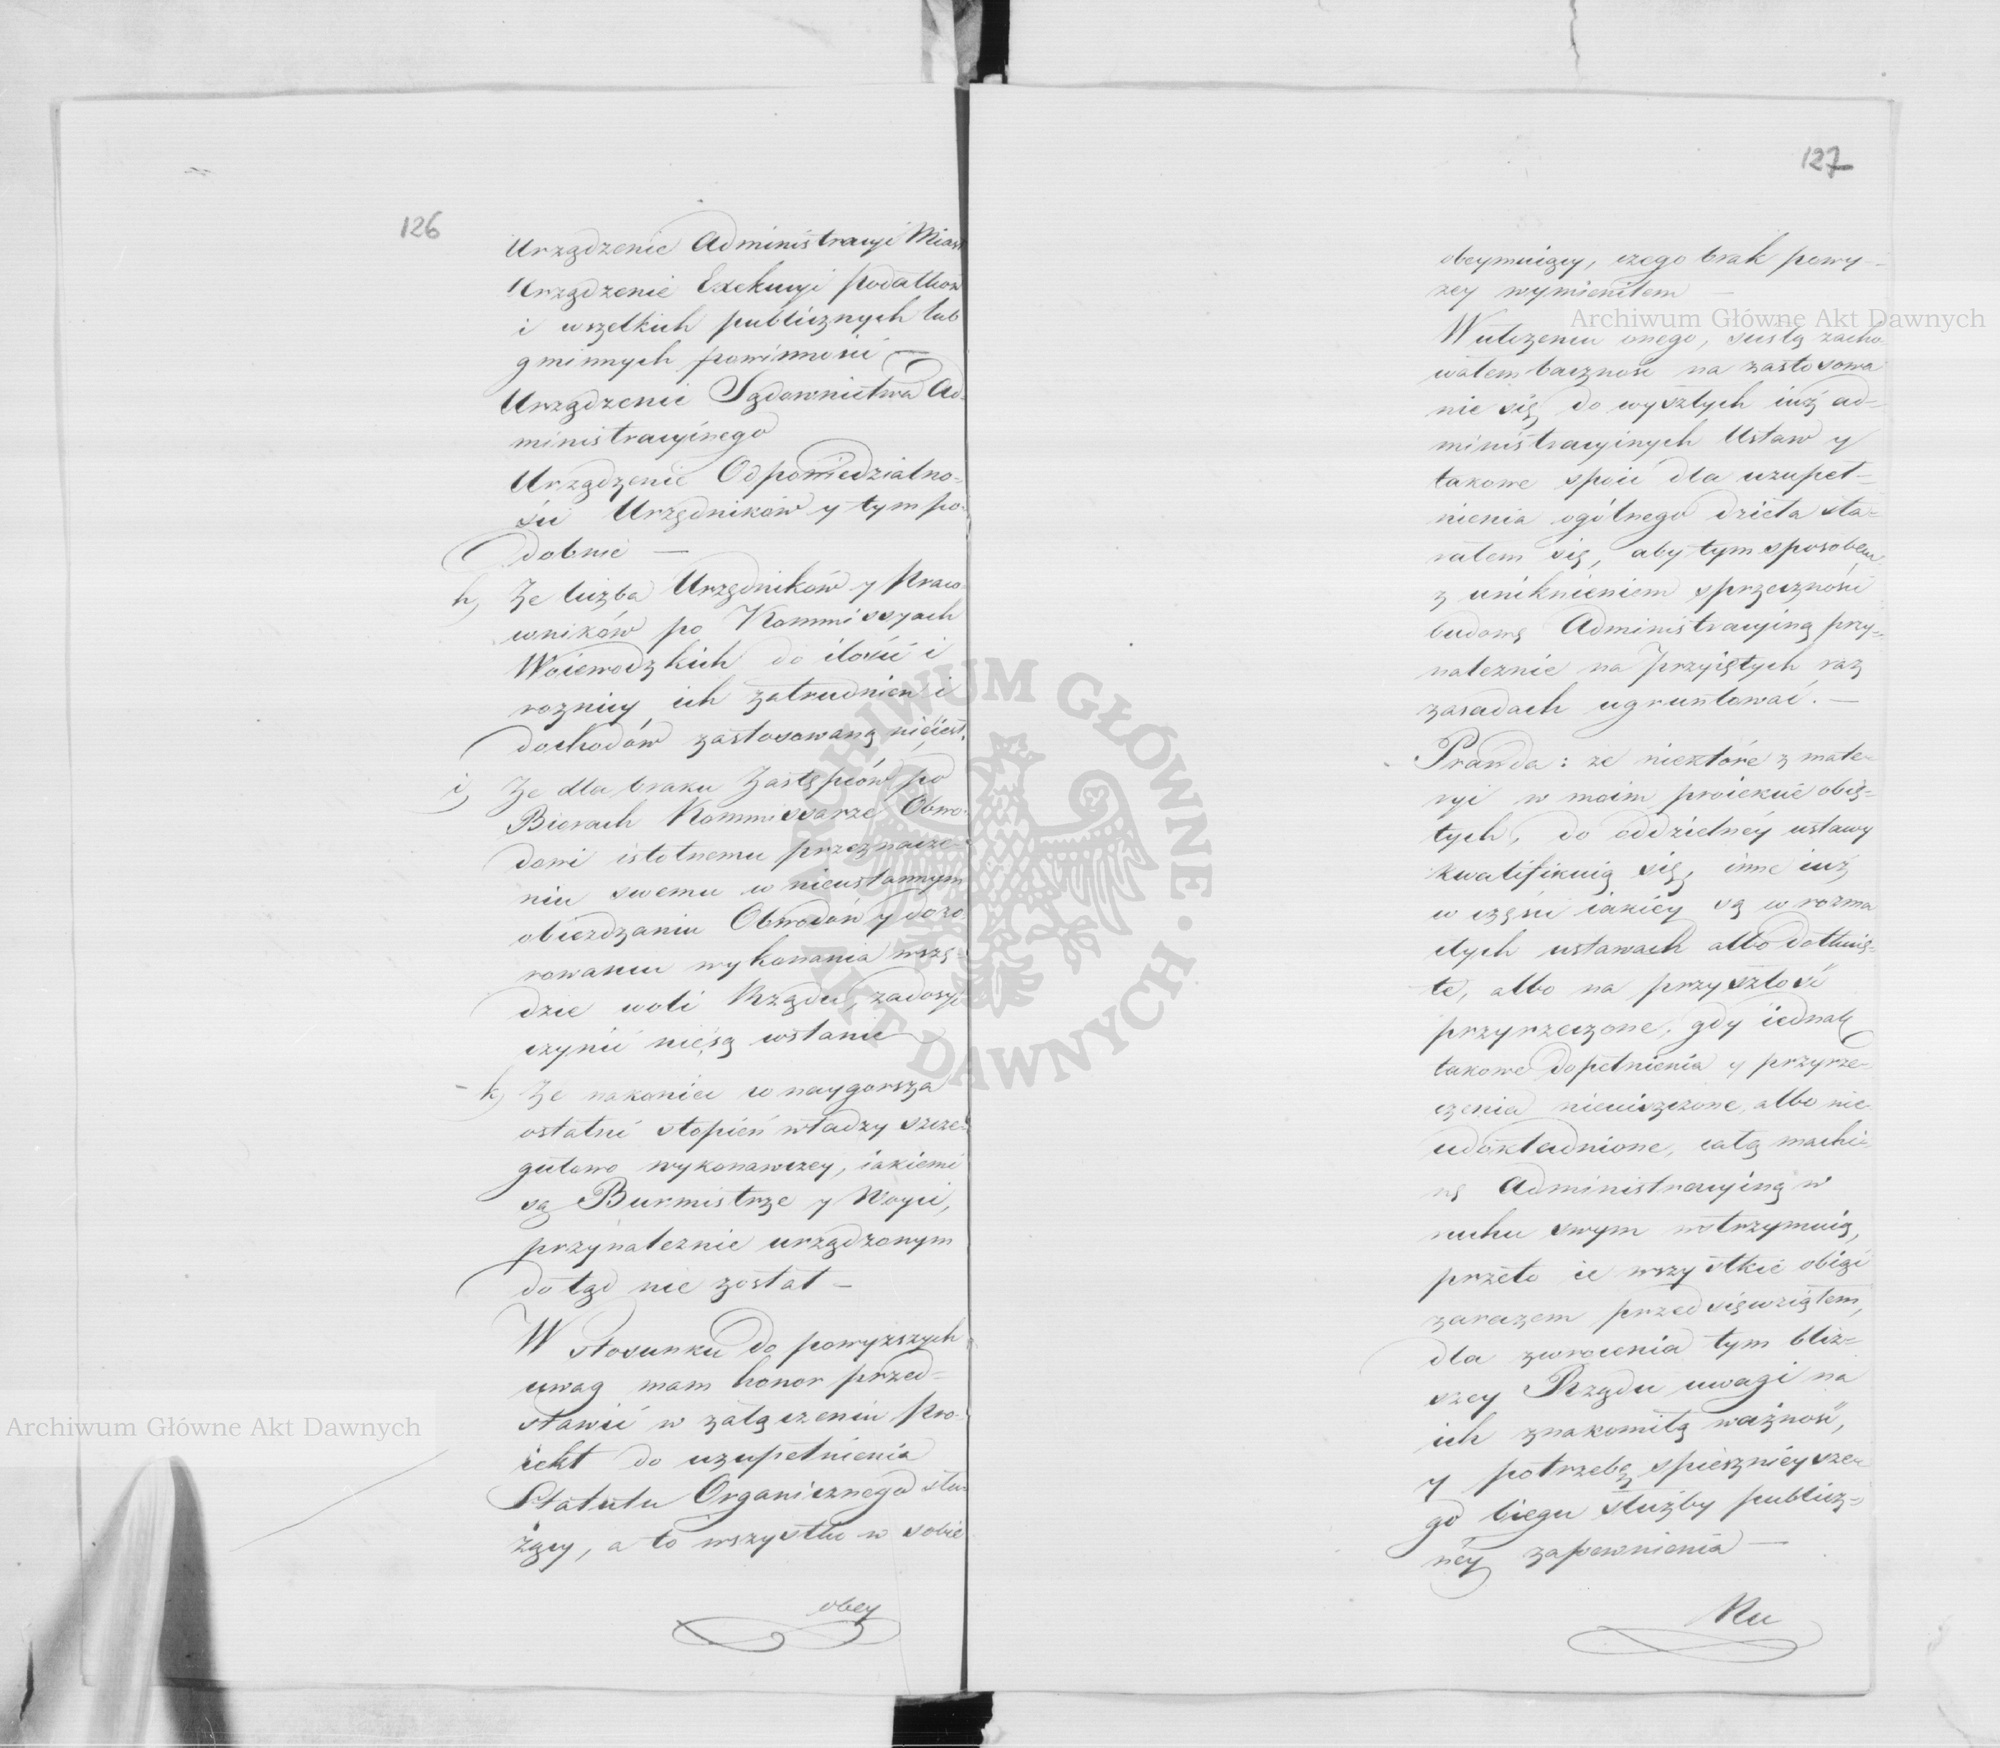 126
Urządzenie Administracyi Miast
Urządzenie Exekucyi podatków
i wszelkich publicznych lub
gminnych powinności —
Urządzenie Sądownictwa Ad-
ministracyinego
Urządzenie Odpowiedzialno-
ści Urzędników y tym po-
dobnie —
h, Że liczba Urzędników y Praco
wników po Kommissyach
Woiewodzkich do ilości i
roznicy ich zatrudnien i
dochodów zastosowaną nieiest.
i, Że dla braku Zastępców po
Biorach Kommissarze Obwo-
dowi istotnemu przeznacze-
niu swemu w nieustannym
obieżdzaniu Obwodów y dozo
rowaniu wykonania wszę-
dzie woli Rządu, zadosyć
czynić niesą wstanie
k, Że nakoniec co naygorsza
ostatni stopień władzy szcze-
gułowo wykonawczey, iakiemi
są Burmistrze y Woyci,
przynależnie urządzonym
dotąd nie został —
W stosunku do powyższych
uwag mam honor przed-
stawić w załączeniu Pro-
iekt do uzupełnienia
Statutu Organicznego słu-
żący, a to wszystko w sobie
obey
127
obeymuiący, czego brak powy-
zey wymieniłem —
W ułożeniu onego, ścisłą zacho
wałem baczność na zastosowa
nie się do wyszłych iuż ad-
ministracyinych Ustaw y
takowe spoić dla uzupeł-
nienia ogólnego dzieła sta-
rałem się, aby tym sposobem
z uniknieniem sprzeczności
budowę Administracyiną przy-
należnie na przyiętych raz
zasadach ugruntować. —
Prawda: że niektóre z mate-
ryi w moim proiekcie obię-
tych, do oddzielnéy ustawy
kwalifikuią się, inne iuż
w części iakiey są w rozma
itych ustawach albo dotknię-
te, albo na przyszłość
przyrzeczone, gdy iednak
takowe dopełnienia y przyrze-
czenia nieuiszczone, albo nie
udokładnione, całą machi-
nę Administracyiną w
ruchu swym wstrzymuią,
przeto ie wszystkie obiąć
zarazem przedsięwziąłem,
dla zwrocenia tym bliż-
szey Rządu uwagi na
ich znakomitą ważność,
y potrzebę spieszniéysze-
go biegu służby publicz-
néy zapewnienia —
Ru
Archiwum Główne Akt Dawnych
Archiwum Główne Akt Dawnych
ARCHIWUM GŁÓWNE AKT DAWNYCH